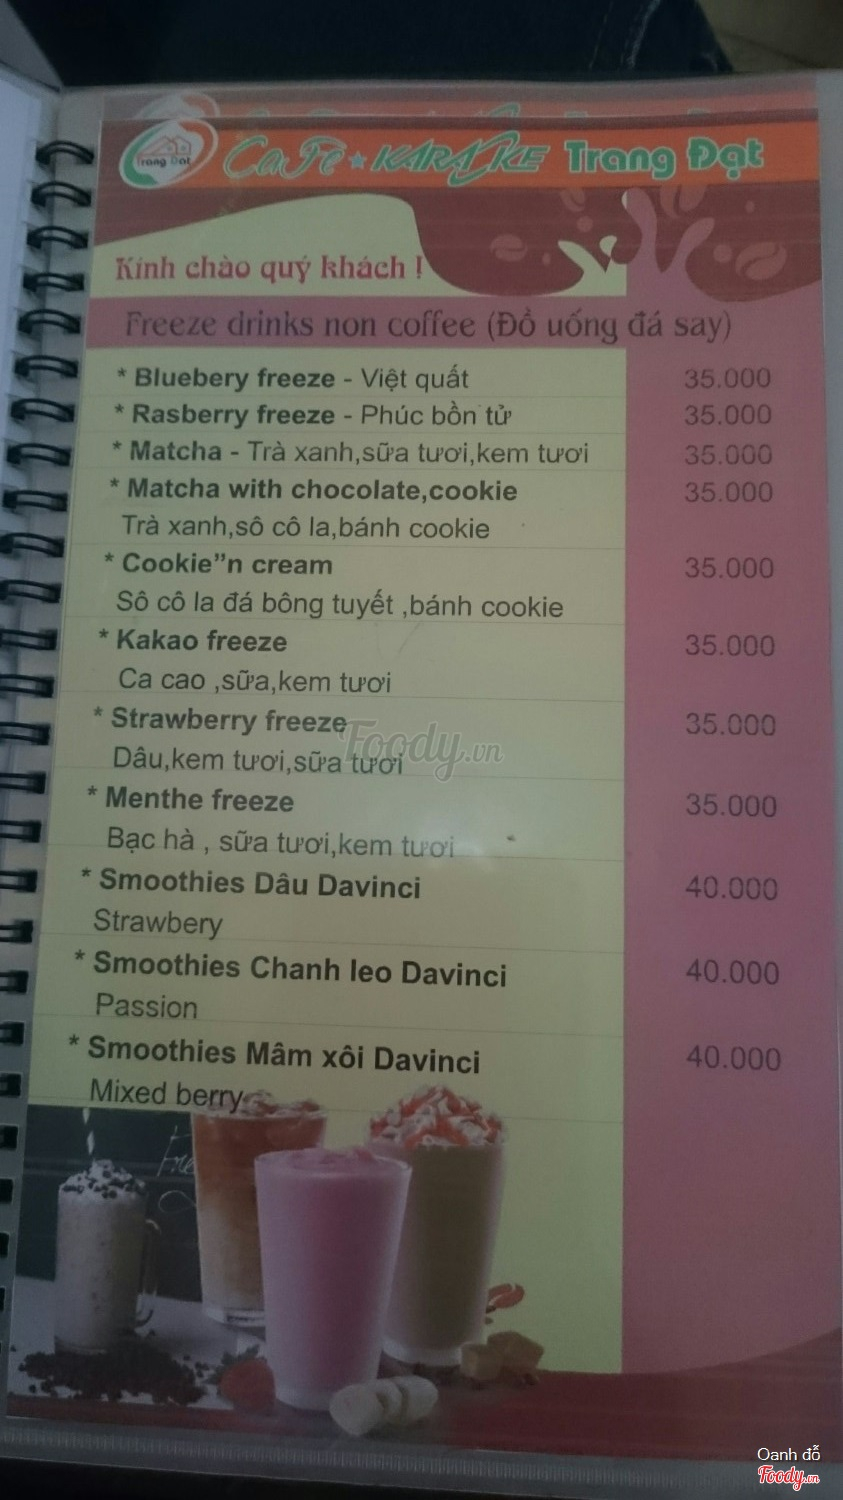 Trang Đạt
CaFe ★ KARAOKE Trang Đạt
Kính chào quý khách !
Freeze drinks non coffee (Đồ uống đá say)
* Bluebery freeze - Việt quất 35.000
* Rasberry freeze - Phúc bồn tử 35.000
* Matcha - Trà xanh,sữa tươi,kem tươi 35.000
* Matcha with chocolate,cookie 35.000
Trà xanh,sô cô la,bánh cookie
* Cookie”n cream 35.000
Sô cô la đá bông tuyết ,bánh cookie
* Kakao freeze 35.000
Ca cao ,sữa,kem tươi
* Strawberry freeze 35.000
Dâu,kem tươi,sữa tươi
* Menthe freeze 35.000
Bạc hà , sữa tươi,kem tươi
* Smoothies Dâu Davinci 40.000
Strawbery
* Smoothies Chanh leo Davinci 40.000
Passion
* Smoothies Mâm xôi Davinci 40.000
Mixed berry
Foody.vn
Oanh đỗ
Foody.vn